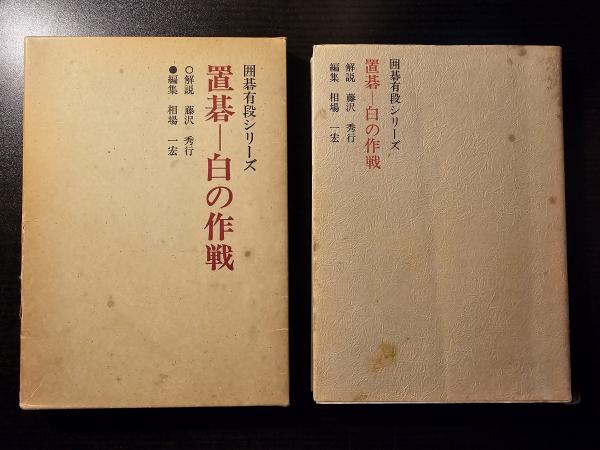 囲碁有段シリーズ
置碁―白の作戦
○解説 藤沢 秀行
●編集 相場 一宏
囲碁有段シリーズ
置碁―白の作戦
解説 藤沢 秀行
編集 相場 一宏